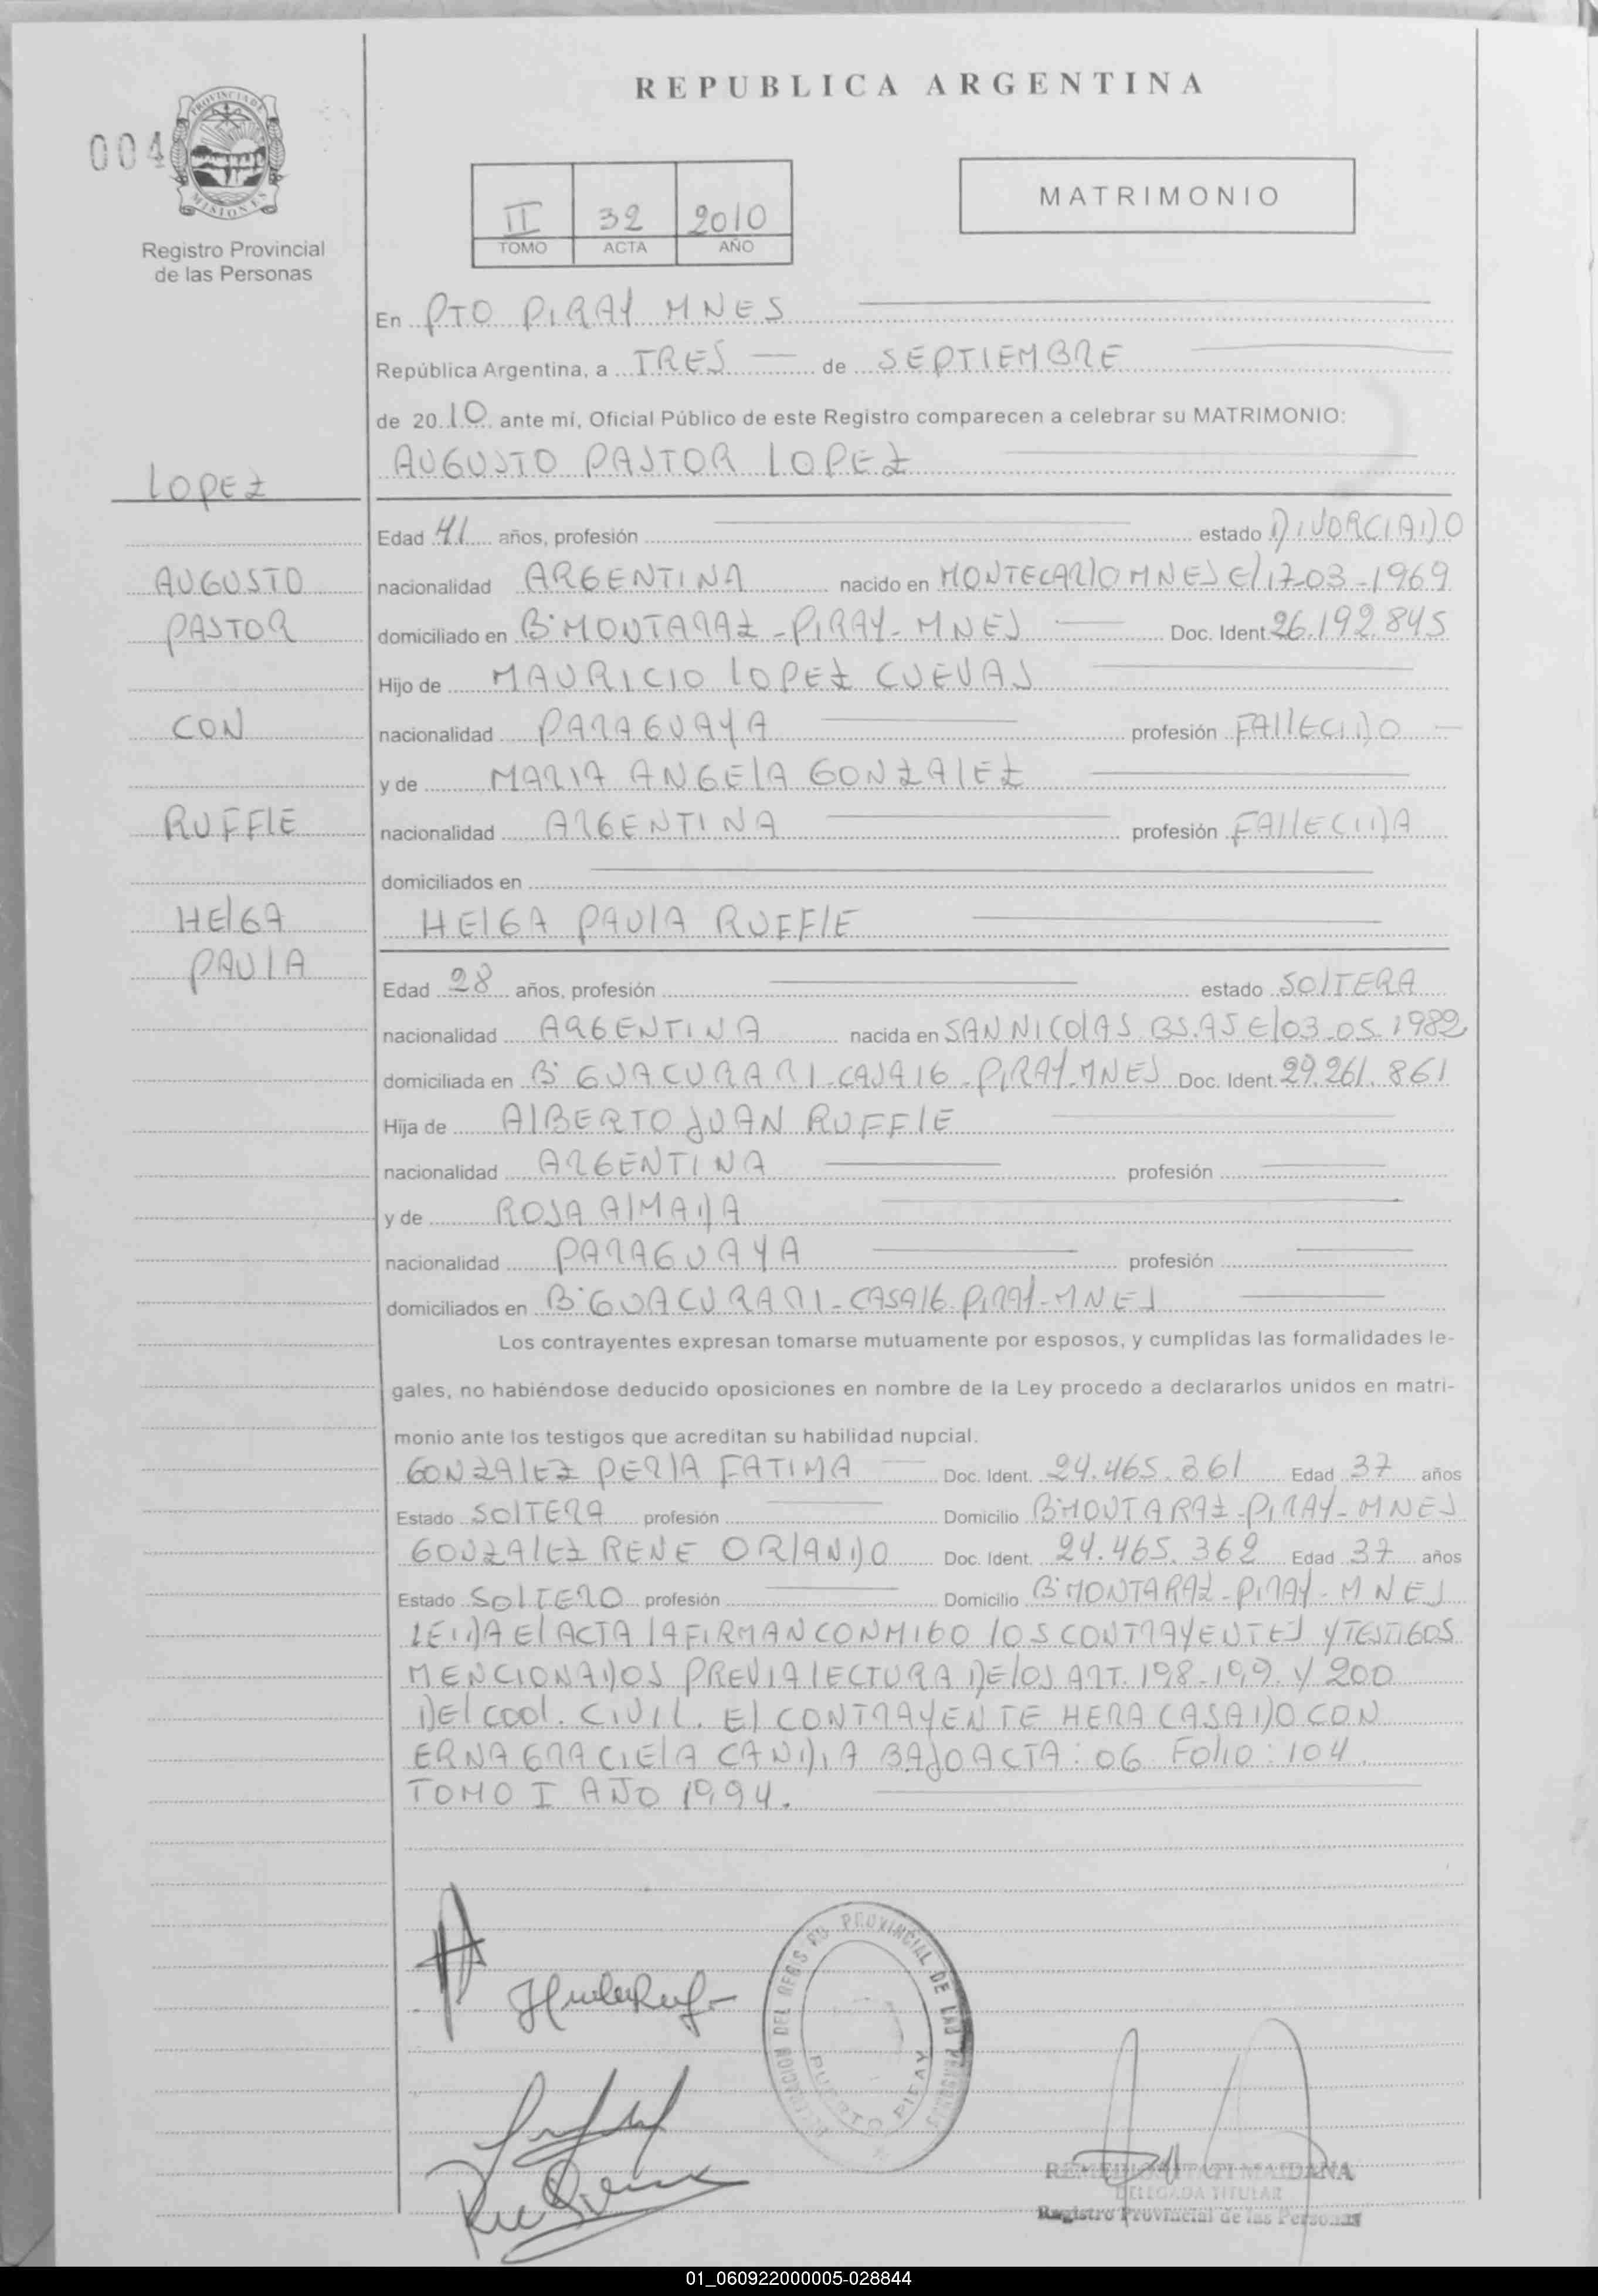 REPUBLICA ARGENTINA
004
PROVINCIA DE
MISIONES
Registro Provincial
de las Personas
MATRIMONIO
II 32 2010
TOMO ACTA AÑO
En PTO PIRAY MNES
República Argentina, a TRES de SEPTIEMBRE
de 2010 ante mí, Oficial Público de este Registro comparecen a celebrar su MATRIMONIO:
AUGUSTO PASTOR LOPEZ
LOPEZ
Edad 41 años, profesión estado DIVORCIADO
AUGUSTO
nacionalidad ARGENTINA nacido en MONTECARLO MNES El 17-03-1969
PASTOR
domiciliado en Bº MONTARAZ - PIRAY - MNES Doc. Ident 26.192.845
Hijo de MAURICIO LOPEZ CUEVAS
CON
nacionalidad PARAGUAYA profesión FALLECIDO
y de MARIA ANGELA GONZALEZ
RUFFLE
nacionalidad ARGENTINA profesión FALLECIDA
domiciliados en
HELGA
HELGA PAULA RUFFLE
PAULA
Edad 28 años, profesión estado SOLTERA
nacionalidad ARGENTINA nacida en SAN NICOLAS BS.AS El 03-05.1982
domiciliada en Bº GUACURARI - CASA 16 - PIRAY - MNES Doc. Ident 29.261.861
Hija de ALBERTO JUAN RUFFLE
nacionalidad ARGENTINA profesión
y de ROSA ALMADA
nacionalidad PARAGUAYA profesión
domiciliados en Bº GUACURARI - CASA 16 PIRAY - MNES
Los contrayentes expresan tomarse mutuamente por esposos, y cumplidas las formalidades le-
gales, no habiéndose deducido oposiciones en nombre de la Ley procedo a declararlos unidos en matri-
monio ante los testigos que acreditan su habilidad nupcial.
GONZALEZ PERLA FATIMA Doc. Ident. 24.465.361 Edad 37 años
Estado SOLTERA profesión Domicilio Bº MONTARAZ - PIRAY - MNES
GONZALEZ RENE ORLANDO Doc. Ident. 24.465.362 Edad 37 años
Estado SOLTERO profesión Domicilio Bº MONTARAZ - PIRAY - MNES
LEIDA El ACTA LA FIRMAN CONMIGO LOS CONTRAYENTES Y TESTIGOS
MENCIONADOS PREVIA LECTURA DE LOS ART. 198-199. Y 200
DEL COD. CIVIL. El CONTRAYENTE HERA CASADO CON
ERNA GRACIELA CANDIA BAJO ACTA: 06 FOLIO: 104
TOMO I AÑO 1994.
DELEGACION DEL REGISTRO PROVINCIAL DE LAS PERSONAS
PUERTO PIRAY
MAIDANA
DELEGADA TITULAR
Registro Provincial de las Personas
01_060922000005-028844